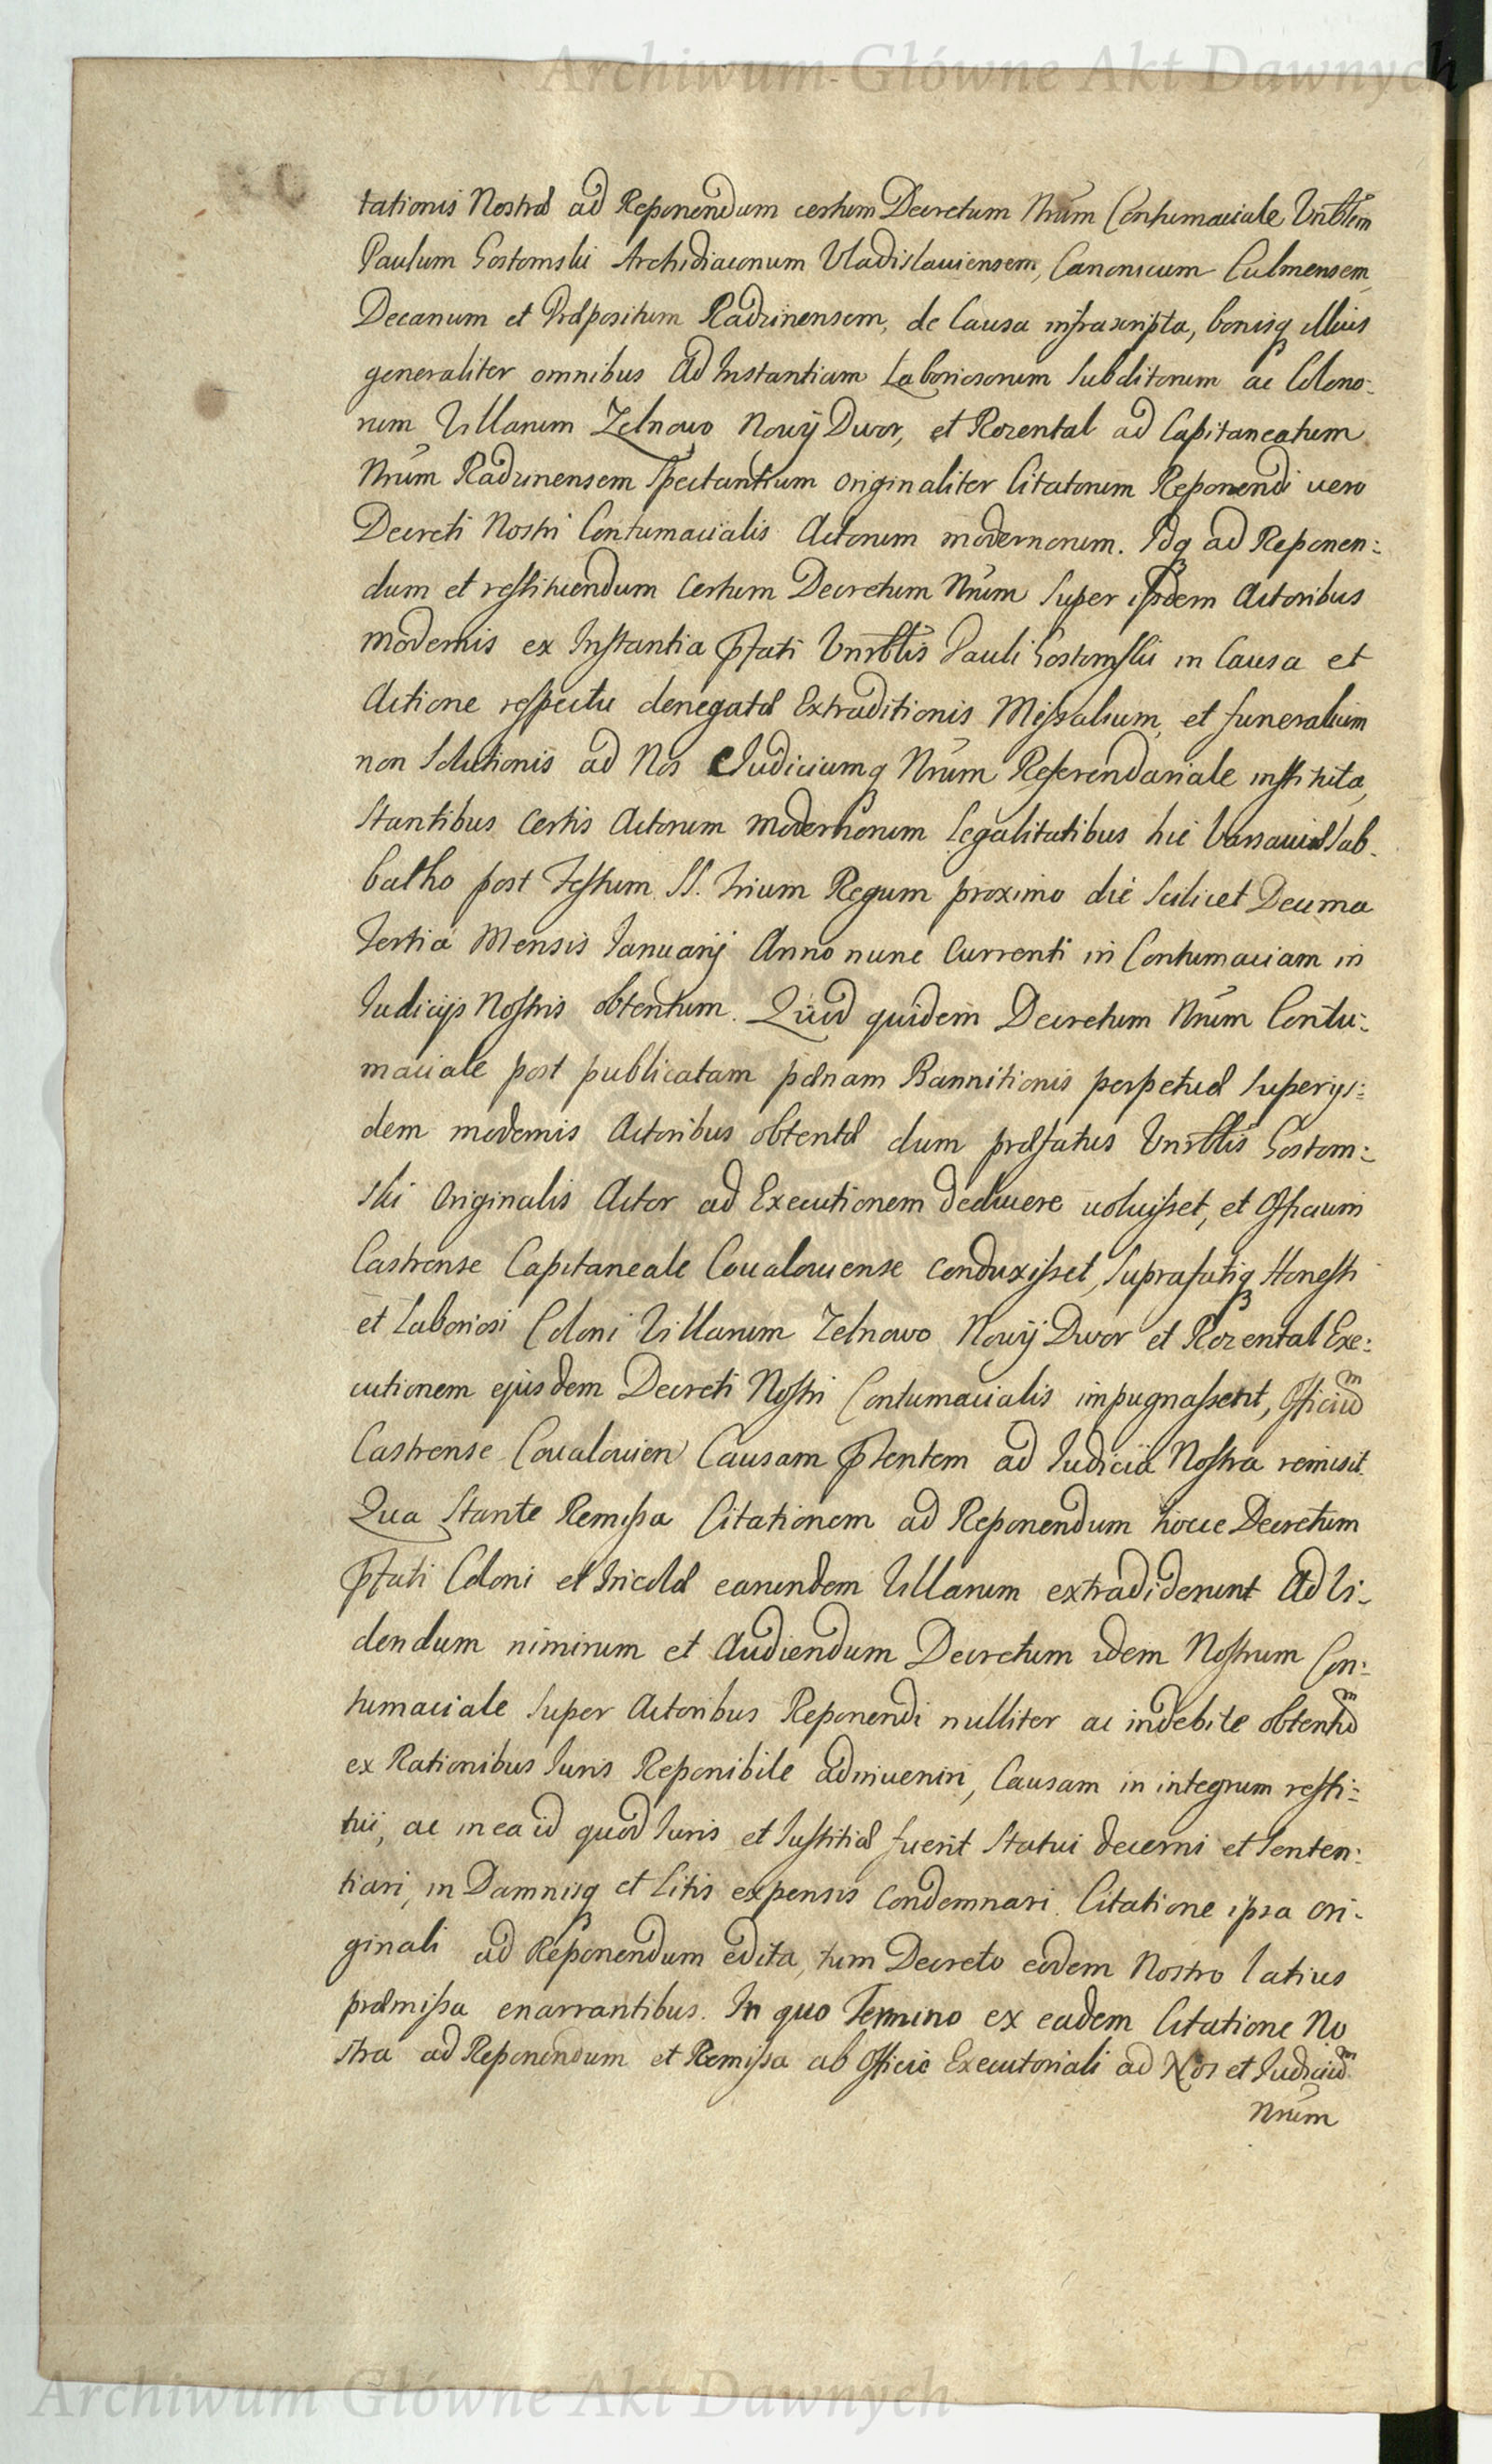 Archiwum Główne Akt Dawnych
tationis Nostræ ad Reponendum certum Decretum Nrũm Contumaciale Vnrb̃lem
Paulum Gostomski Archidiaconum Vladislauiensem, Canonicum Culmensem,
Decanum et Præpositum Radzinensem, de Causa infrascripta, bonisq illius
generaliter omnibus Ad Instantiam Laboriosorum Subditorum ac Colono:
rum Villarum Zelnowo Nowÿ Dwor, et Rozental ad Capitaneatum
Nrũm Radzinensem Spectantium originaliter Citatorum Reponendi uero
Decreti Nostri Contumacialis Actorum modernorum. Idq ad Reponen:
dum et restituendum certum Decretum Nrũm Super ijsdem Actoribus
modernis ex Instantia Pfati Vnrb̃lis Pauli Gostomski in Causa et
Actione respectu denegatæ Extraditionis Missalium, et funeralium
non Solutionis ad Nos Iudiciumq Nrũm Referendariale instituta,
Stantibus certis Actorum modernorum Legalitatibus hic Varsauiæ Sab:
batho post Festum SS. Trium Regum proximo die Scilicet Decima
Tertia Mensis Ianuarij Anno nunc Currenti in Contumaciam in
Iudicijs Nostris obtentum. Quod quidem Decretum Nrũm Contu:
maciale post publicatam pænam Bannitionis perpetuæ Super ijs:
dem modernis Actoribus obtentæ dum præfatus Vnrb̃lis Gostom:
ski Originalis Actor ad Executionem deducere uoluisset, et Officium
Castrense Capitaneale Coualouiense conduxisset, Suprafatiq Honesti
et Laboriosi Coloni Villarum Zelnowo Nowÿ Dwor et Rozental Exe:
cutionem ejusdem Decreti Nostri Contumacialis impugnassent, Officiũm
Castrense Coualouien Causam Pñtentem ad Iudicia Nostra remisit.
Qua Stante Remissa Citationem ad Reponendum hocce Decretum
Pfati Coloni et Incolæ earundem Villarum extradiderunt Ad Vi:
dendum nimirum et Audiendum Decretum idem Nostrum Con:
tumaciale Super Actoribus Reponendi nulliter ac indebite obtentũm
ex Rationibus Iuris Reponibile adinueniri, Causam in integrum resti:
tui, ac in ea id quod Iuris et Iustitiæ fuerit Statui decerni et Senten:
tiari, in Damnisq et Litis expensis condemnari. Citatione ipsa ori:
ginali ad Reponendum edita, tum Decreto eodem Nostro latius
præmissa enarrantibus. In quo Termino ex eadem Citatione No
stra ad Reponendum et Remissa ab Officio Executoriali ad Nos et Iudiciũm
Nrũm
Archiwum Główne Akt Dawnych